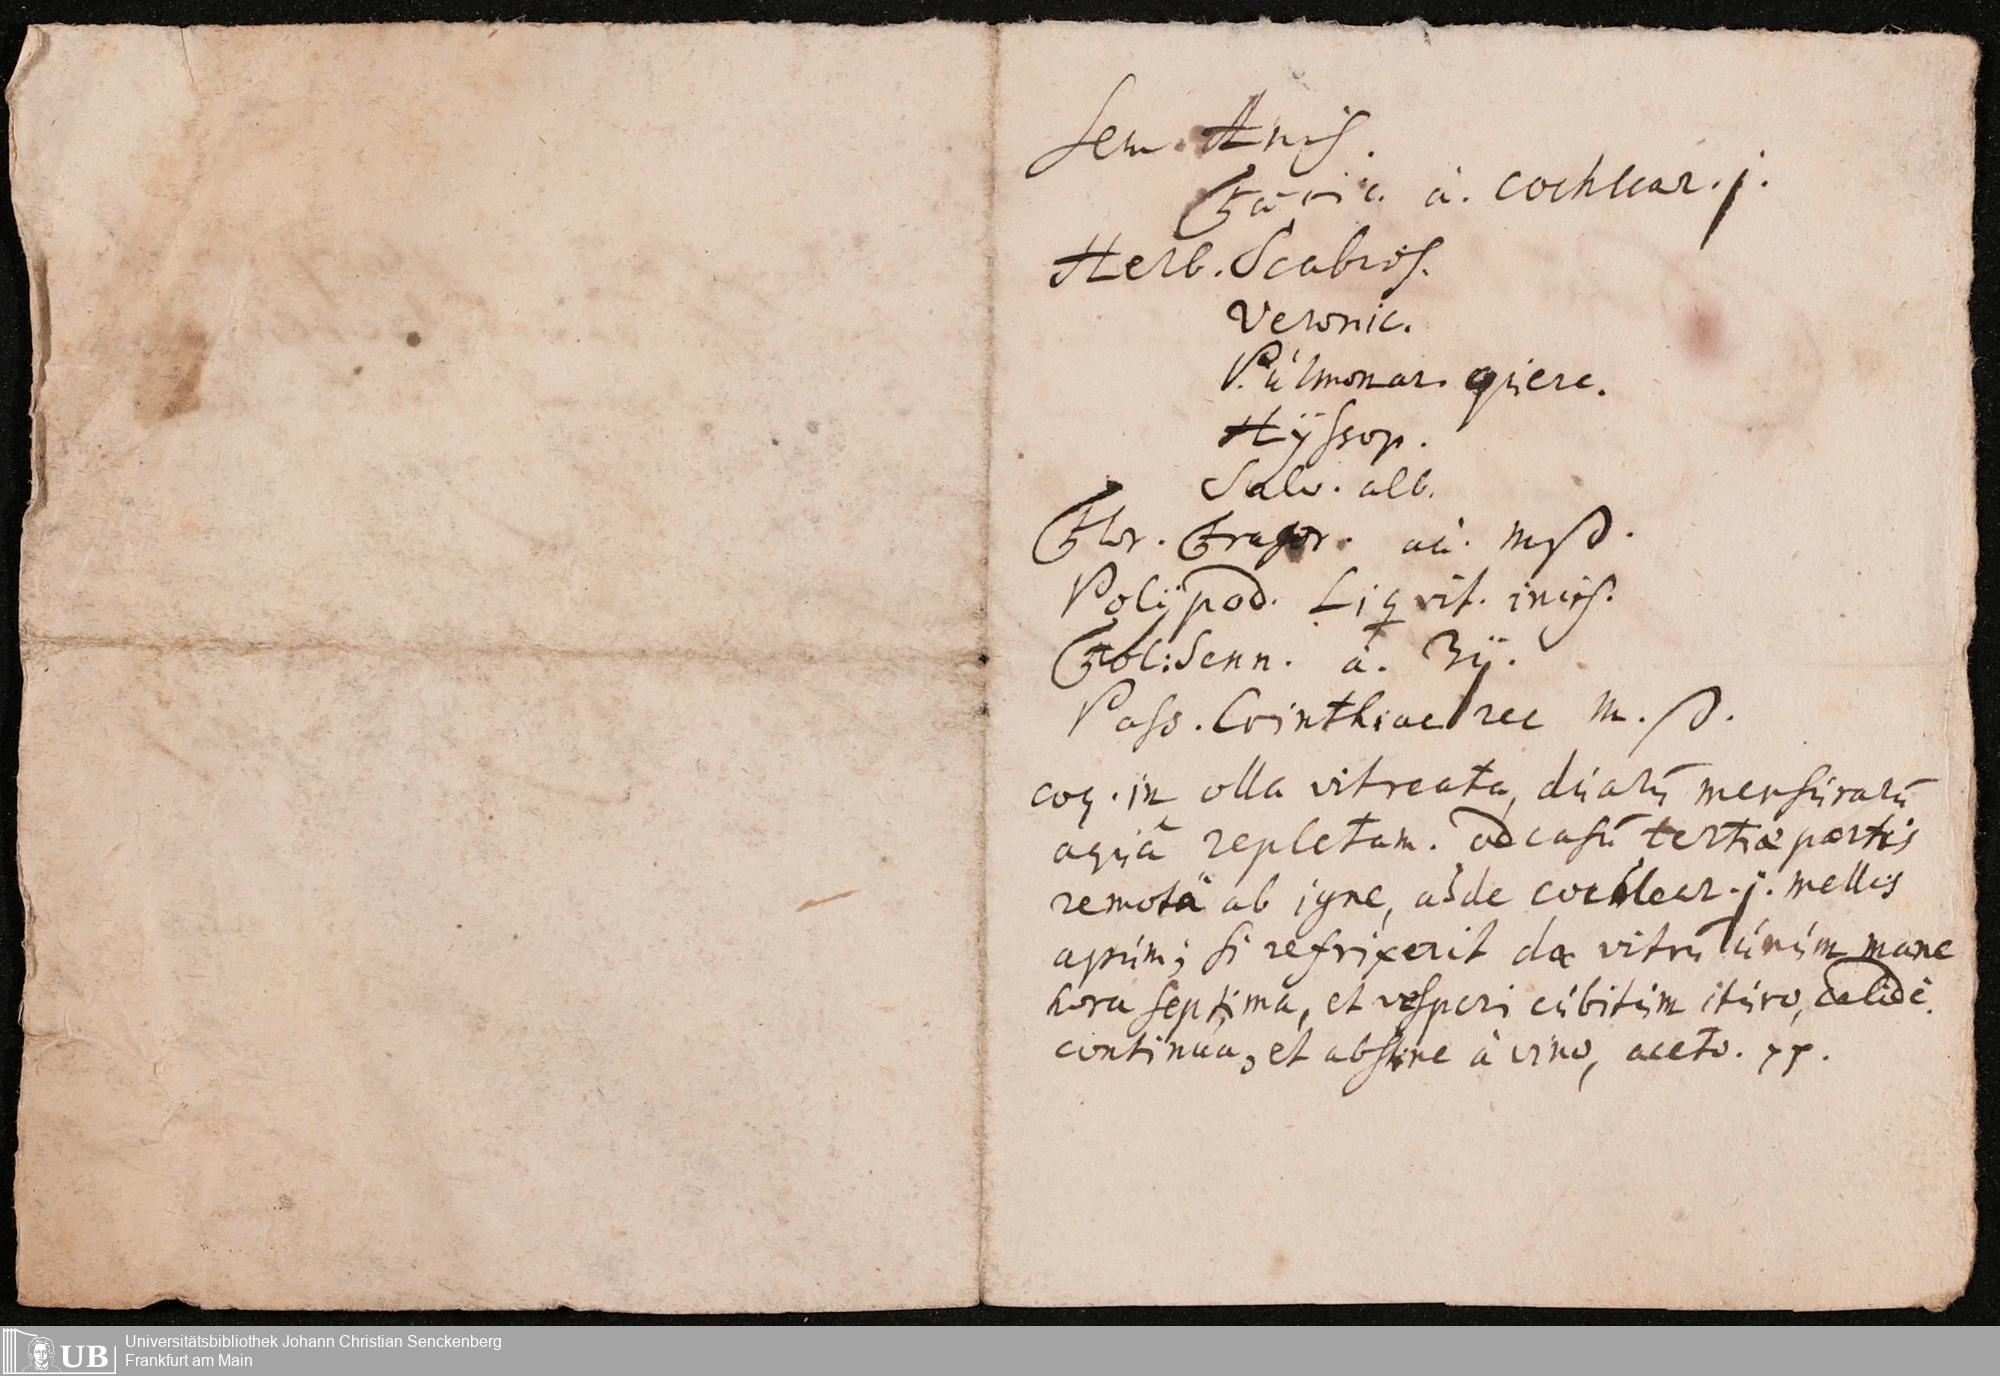 Sem. Anis.
Fœnic. à. cochlear. j.
Herb. Scabios.
Veronic.
Pulmonar. querc.
Hÿssop.
Salv. alb.
Flor. Fragar. aā. mß.
Polÿpod. Liqvit. incis.
Fol: Senn. à. ʒij.
Pass. Corinthiac rec m. ß.
coq. in olla vitreata, duarū mensurarū
aquâ repletam. ad casū tertiæ partis
remotâ ab igne, adde cochlear. j. mellis
apum; si refrixerit da vitrū unum mane
hora septima, et vesperi cubitum ituro, calidè.
continua, et abstine à vino, aceto.
UB
Universitätsbibliothek Johann Christian Senckenberg
Frankfurt am Main